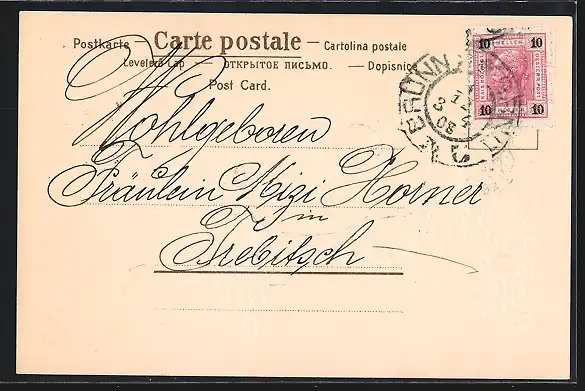 Postkarte — Carte postale — Cartolina postale
Levelező-Lap — ОТКРЫТОЕ ПИСЬМО. — Dopisnice
Post Card.
10 HELLER 10
10 10
BRÜNN
3
08
Wohlgeboren
Fräulein Mizi Horner
in
Trebitsch